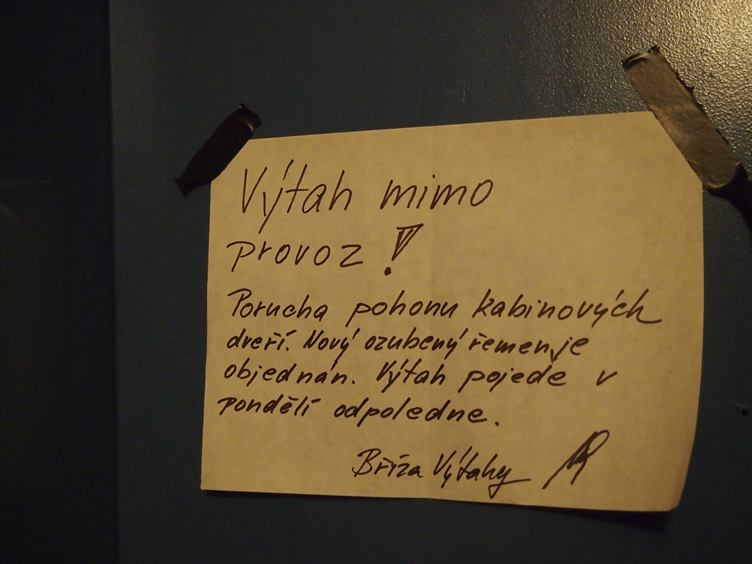 Výtah mimo
provoz!
Porucha pohonu kabinových
dveří. Nový ozubený řemen je
objednán. Výtah pojede v
pondělí odpoledne.
Bříza Výtahy